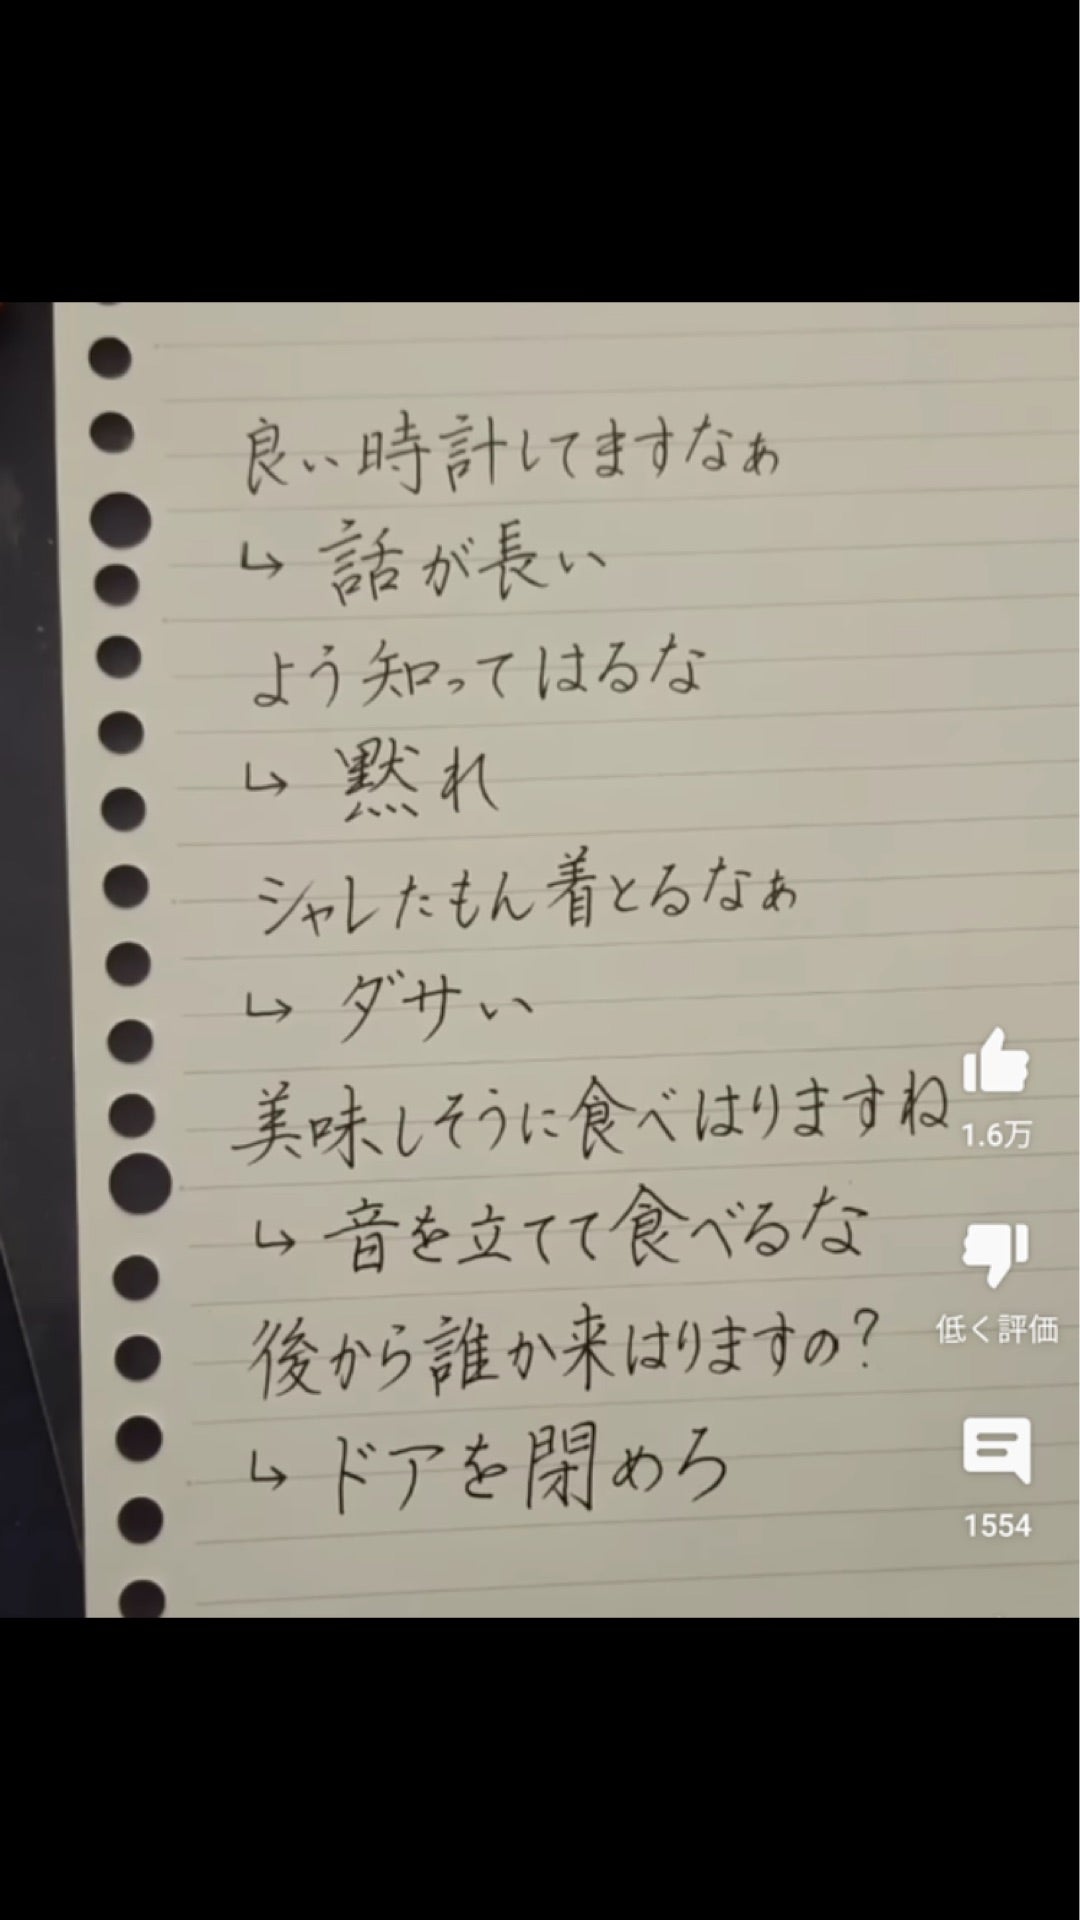 良い時計してますなぁ
↳ 話が長い
よう知ってはるな
↳ 黙れ
シャレたもん着とるなぁ
↳ ダサい
美味しそうに食べはりますね
↳ 音を立てて食べるな
後から誰か来はりますの?
↳ ドアを閉めろ
1.6万
低く評価
1554